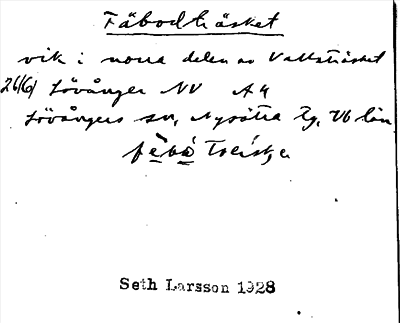 Fäbodträsket
vik i norra delen av Vallträsket
26161 Lövånger NV A4
Lövångers sn, Nysätra tg, Vb län
Seth Larsson 1928